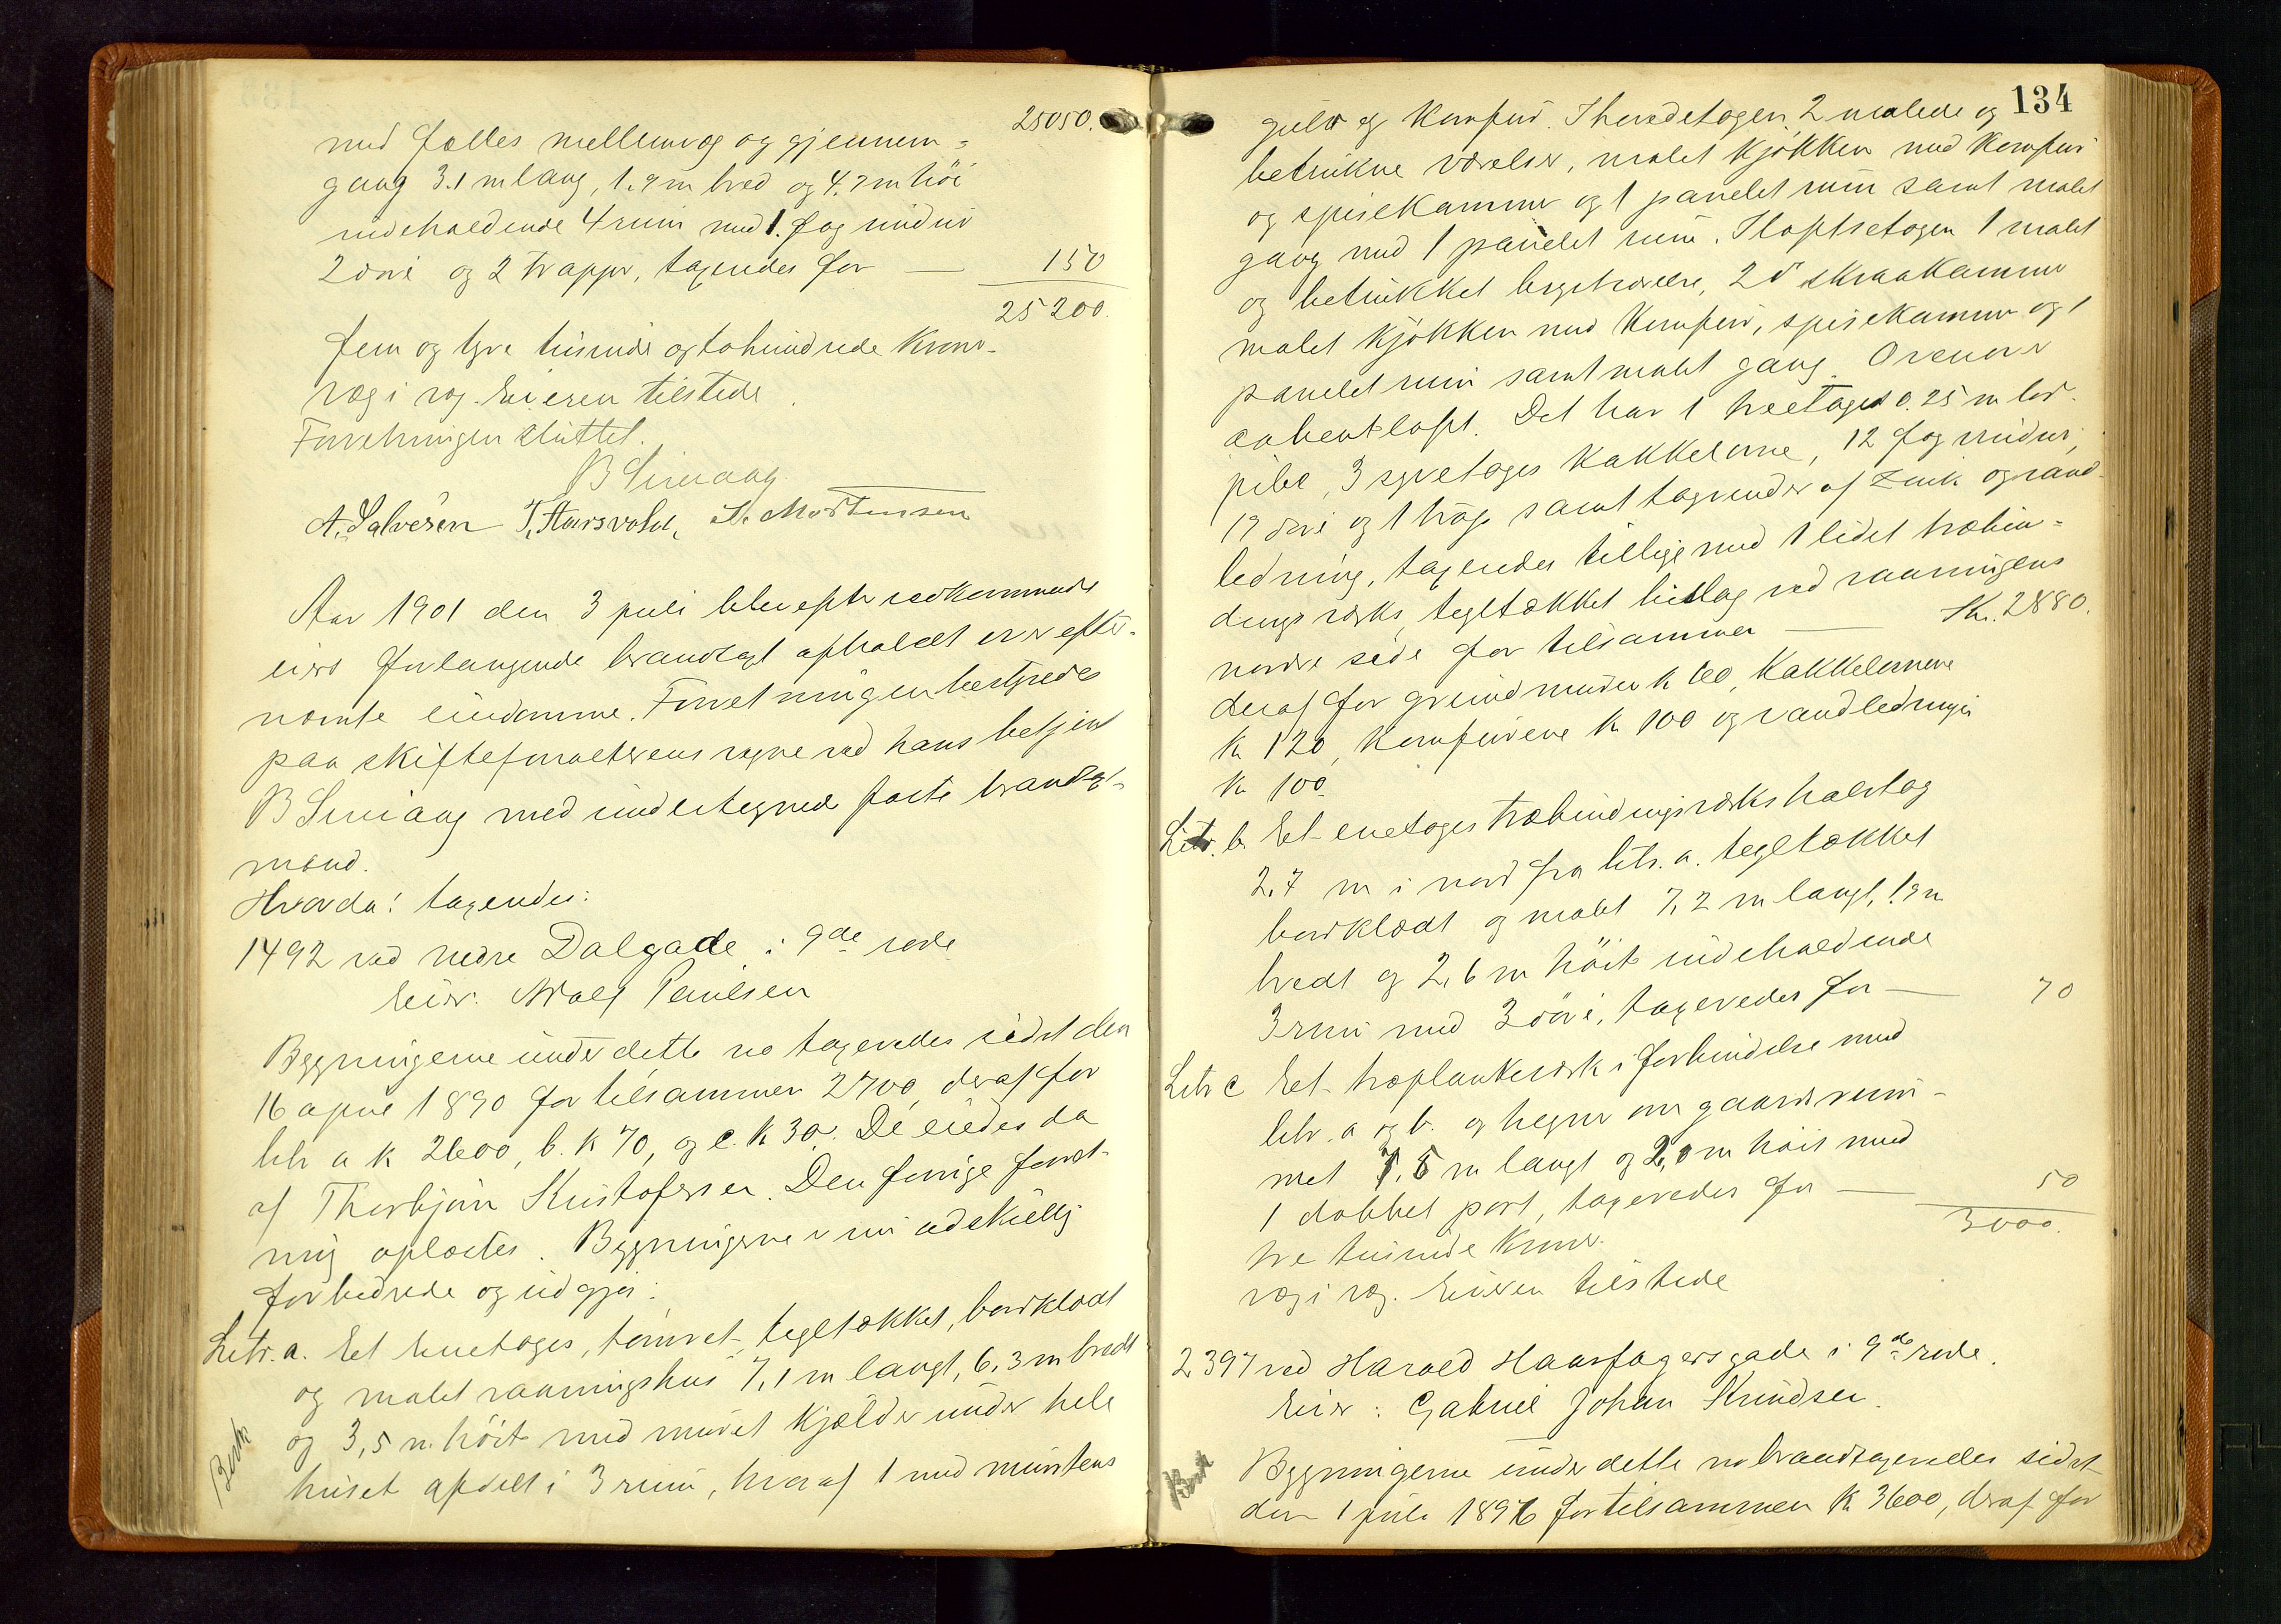 25050.
med fælles mellemvæg og gjennem-
gang 3.1 m lang, 1.9 m bred og 4.7 m höi
indeholdende 4 rum med 1. fag vindui
2 döre og 2 trapper, taxeredes for — 150
25200.
Fem og tyve tusinde og to hundrede Kroner.
ræg i ræg. Eieren tilstede.
Forretningen sluttet.
B Simang
A. Salvesen T. Aarsvold, A. Mortensen
Aar 1901 den 3 juli blev efter vedkommende
eiers forlangende brandtaxt afholdt over efter-
nævnte eiendomme. Forretningen bestyredes
paa skifteforvalterens vegne ved hans betjent
B Simang med undertegnede faste brandtaxt-
mænd.
Hvorda! taxerdes:
1492 ved nedre Dalgade i 9de rode
Eier: Adolf Paulsen
Bygningerne under dette no taxeredes sidst den
16 april 1890 for tilsammen 2700, deraf for
litr a K 2600, b. K 70, og c. K 30. De eiedes da
af Thorbjörn Kristofersen. Den forrige forret-
ning oplæstes. Bygningerne er nu adskillig
forbedrede og udgjör:
Litr. a. Et enetages, tömret, tegltækket, bordklædt
og malet vaaningshus 7,1 m langt, 6,3 m bredt
og 3,5 m. höit med muret Kjælder under hele
huset afdelt i 3 rum, hvoraf 1 med murstens
134
gulv og Komfur. I hovedetagen 2 malede og
betrukne værelser, malet Kjökken med Komfur
og spiseKammer og 1 panelet rum samt malet
gang med 1 panelet rum. I loftsetagen 1 malet
og betrukket kvistværelse, 2 do skraakammer
malet Kjökken med Komfur, spisekammer og 1
panelet rum samt malet gang. Ovenover
aabent loft. Det har 1 treetages 0.25 m lös
pibe, 3 syvetages Kakkelovne, 12 fag vinduer,
19 döre og 1 trap samt tagrender af zink og vand-
ledning, taxeredes tillige med 1 lidet træbin-
dings værks tegltækket bislag ved vaaningens
nordre side for tilsammen — Kr. 2880.
deraf for grundmuren K 160, Kakkelovnene
K 120, Komfurene K 100 og vandledningen
K 100.
Litr. b. Et enetages træbindingsværks halvtag
2,7 m i nord fra litr. a. tegltækket
bordklædt og malet 7,2 m langt, 1.9 m
bredt og 2,6 m höit indeholdende
3 rum med 3 döre, taxeredes for — 70
Litr c Et træplankeværk i forbindelse med
litr. a og b. og hegner om gaardsrum-
met 7,5 m langt og 2,0 m höit med
1 dobbel port, taxeredes for — 50
3000.
tre tusinde Kroner.
ræg i ræg. Eieren tilstede
2397 ved Harald Haarfagersgade i 9de rode.
Eier: Gabriel Johan Knudsen.
Bygningerne under dette no brandtaxeredes sidst
den 1 juli 1896 for tilsammen K. 3600, deraf for